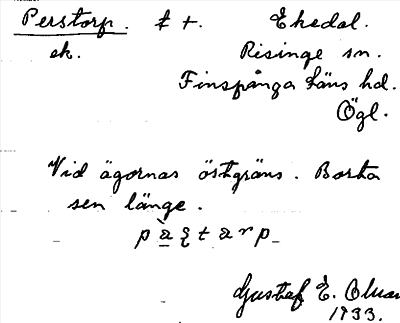 Perstorp. ⱡ +. Ekedal.
ek. Risinge sn.
Finspånga läns hd.
Ögl.
Vid ägornas östgräns. Borta
sen länge.
Gustaf E.
1933.